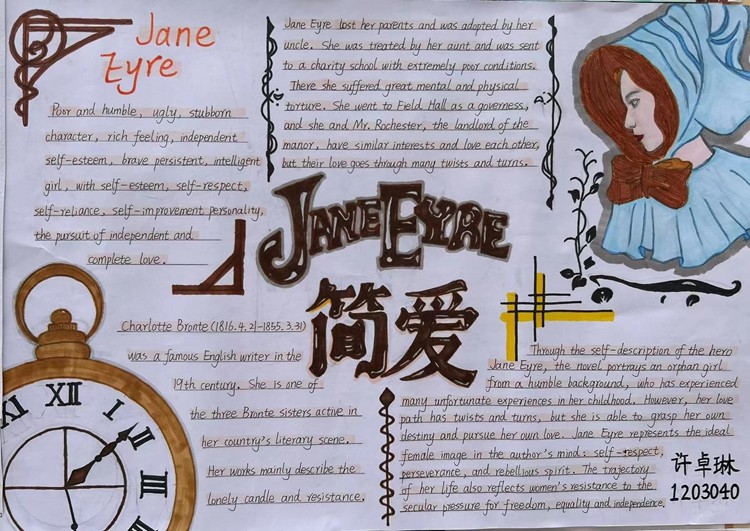 Jane
Eyre
Poor and humble, ugly, stubborn
character, rich feeling, independent
self-esteem, brave persistent, intelligent
girl, with self-esteem, self-respect,
self-reliance, self-improvement personality,
the pursuit of independent and
complete love.
Jane Eyre lost her parents and was adopted by her
uncle. She was treated by her aunt and was sent
to a charity school with extremely poor conditions.
There she suffered great mental and physical
torture. She went to Field Hall as a governess,
and she and Mr. Rochester, the landlord of the
manor, have similar interests and love each other,
but their love goes through many twists and turns.
JANE EYRE
简爱
Charlotte Bronte (1816.4.21-1855.3.31)
was a famous English writer in the
19th century. She is one of
the three Bronte sisters active in
her country's literary scene.
Her works mainly describe the
lonely candle and resistance.
XI XII I II III IIII
Through the self-description of the hero
Jane Eyre, the novel portrays an orphan girl
from a humble background, who has experienced
many unfortunate experiences in her childhood. However, her love
path has twists and turns, but she is able to grasp her own
destiny and pursue her own love. Jane Eyre represents the ideal
female image in the author's mind: self-respect,
perseverance, and rebellious spirit. The trajectory
of her life also reflects women's resistance to the
secular pressure for freedom, equality and independence.
许卓琳
1203040